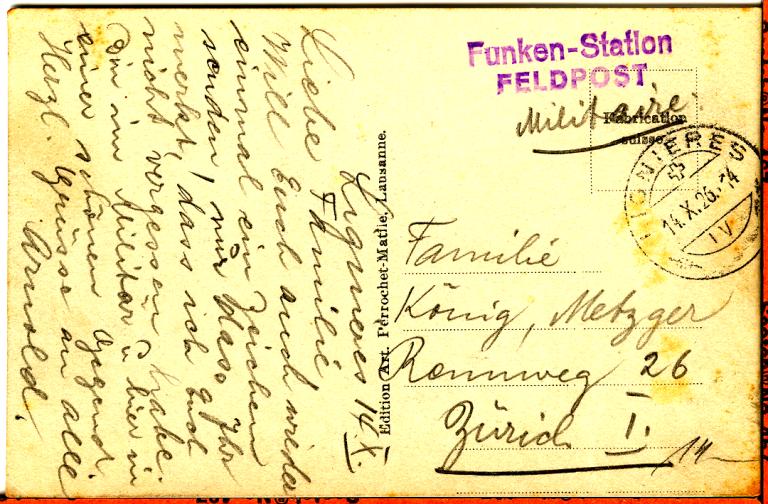 Funken-Station
FELDPOST
Militaire.
Fabrication
suisse
14.X.26.-14
IV
Familie
König, Metzger
Rennweg 26
Zürich I.
14
Edition Art. Perrochet-Matile, Lausanne.
14. X.
Liebe Familie
Will Euch auch wieder
einmal ein Zeichen
senden, nur dass Ihr
merkt, dass ich Euch
nicht vergessen habe.
Bin im Militär u. hier in
einer schönen Gegend.
Herzl. Grüsse an alle
Arnold.